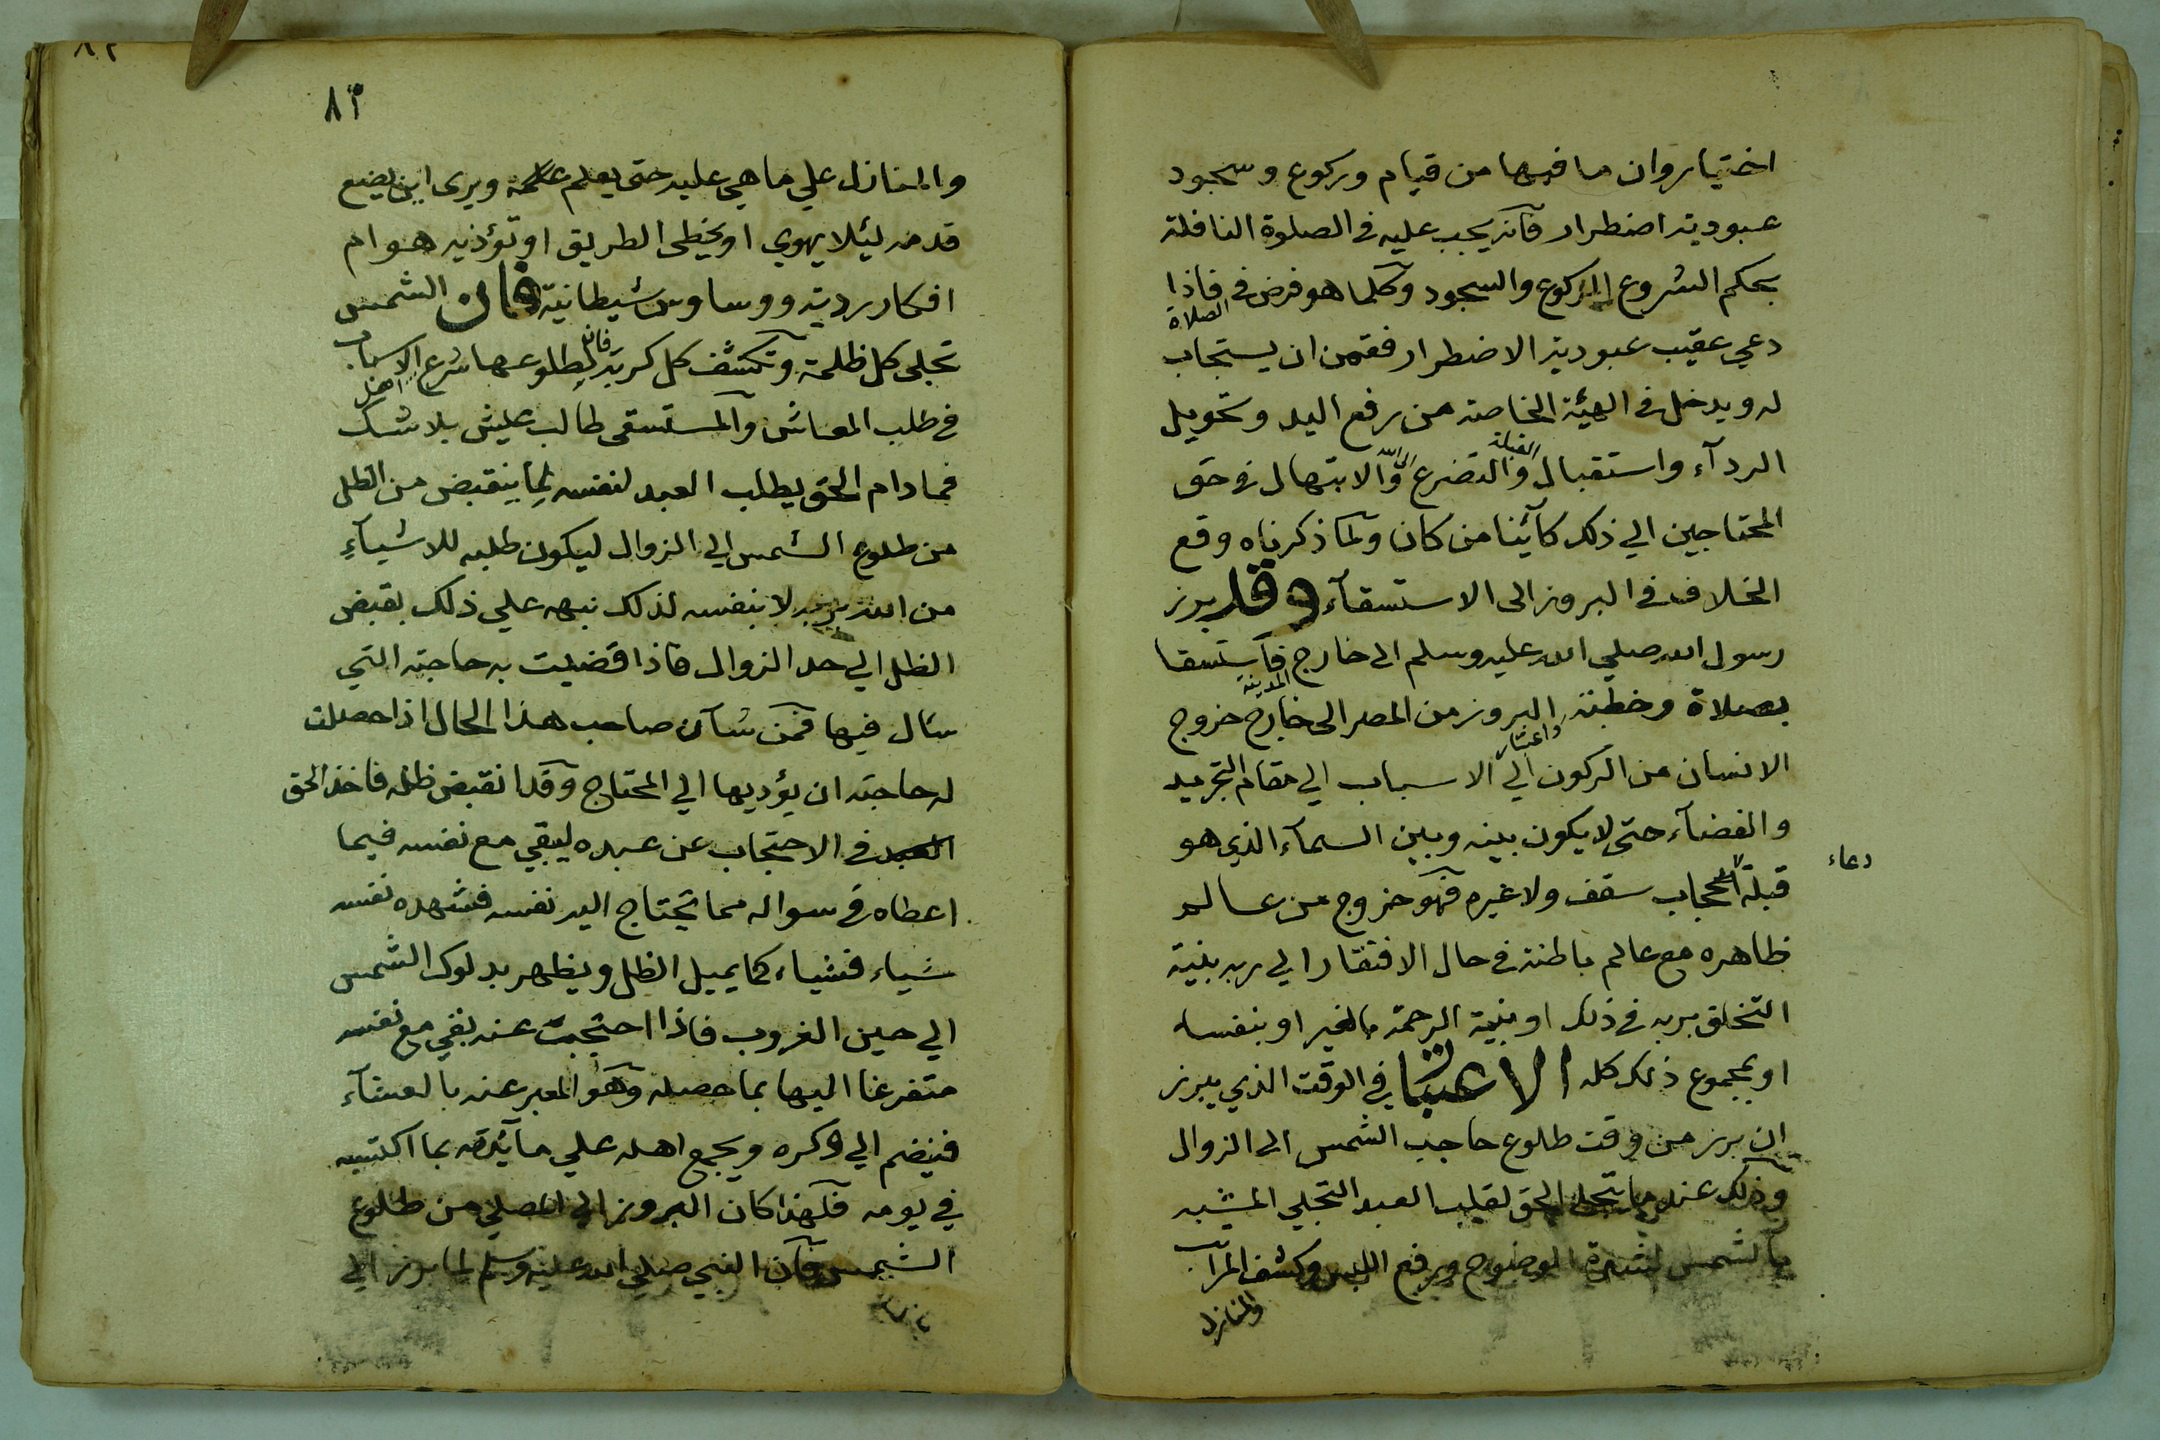 اختيار وان ما فيها من قيام وركوع وسجود
عبودية اضطرار فآنه يجب عليه في الصلوة النافلة
بحكم الشروع الركوع والسجود وكلما هو فرض في الصلاة فاذا
دعي عقيب عبودية الاضطرار فقمن ان يستجاب
له ويدخل في الهيئة الخاصة من رفع اليد وتحويل
الردآء واستقبال القبلة والتضرع الى الله والابتهال في حق
المحتاجين الي ذلك كآئنا من كان ولما ذكرناه وقع
الخلاف في البروز الى الاستسقآء وقد برز
رسول الله صلي الله عليه وسلم الى خارج المدينة فآستسقا
بصلاة وخطبة واعتبار البروز من المصر الى خارج خروج
الانسان من الركون الي الاسباب الي مقام التجريد
والفضآء حتى لا يكون بينه وبين السمآء الذي هو
قبلة الدعاء حجاب سقف ولا غيره فهو خروج من عالم
دعاء
ظاهره مع عالم باطنه في حال الافتقار الي ربه بنية
التخلق بربه في ذلك او بنية الرحمة بالغير او بنفسه
او بمجموع ذلك كله الاعتبار في الوقت الذي يبرز
ان برز من وقت طلوع حاجب الشمس الى الزوال
وذلك عند ما يتجلى الحق لقلب العبد التجلي المشبه
بالشمس لشدة الوضوح ويرفع اللبس وكشف المراتب
والمنازل
٨٢
٨٣
والمنازل علي ما هي عليه حتى يعلم ويرى اين يضع
قدمه ليئلا يهوي او يخطي الطريق او تؤذيه هوام
افكار ردية ووساوس شيطانية فان الشمس
تجلي كل ظلمة وتكشف كل كربة فان لطلوعها شرع الاسباب
في طلب المعاش والمستسقي طالب عيش بلا شك
فما دام الحق يطلب العبد لنفسه لما ينقبض من الظل
من طلوع الشمس الي الزوال ليكون طلبه للاشيآء
من الله بربه لا بنفسه لذلك نبهه علي ذلك بقبض
الظل الي حد الزوال فاذا قضيت به حاجته التي
سئال فيها فمن شآن صاحب هذا الحال اذا حصلت
له حاجته ان يؤديها الي المحتاج وقد انقبض ظله فاخذ الحق
في الاحتجاب عن عبده ليبقي مع نفسه فيما
اعطاه في سواله مما تحتاج اليه نفسه فشهده نفسه
شياء فشياء كما يميل الظل ويظهر بدلوك الشمس
الي حين الغروب فاذا احتجبت عنه بقي مع نفسه
متفرغا اليها بما حصله وهو المعبر عنه بالعشآء
فينضم الي وكره ويجمع اهله علي مآئدته بما اكتسبه
في يومه فلهذا كان البروز الي المصلي من طلوع
الشمس فآن النبي صلي الله عليه وسلم لما برز الي